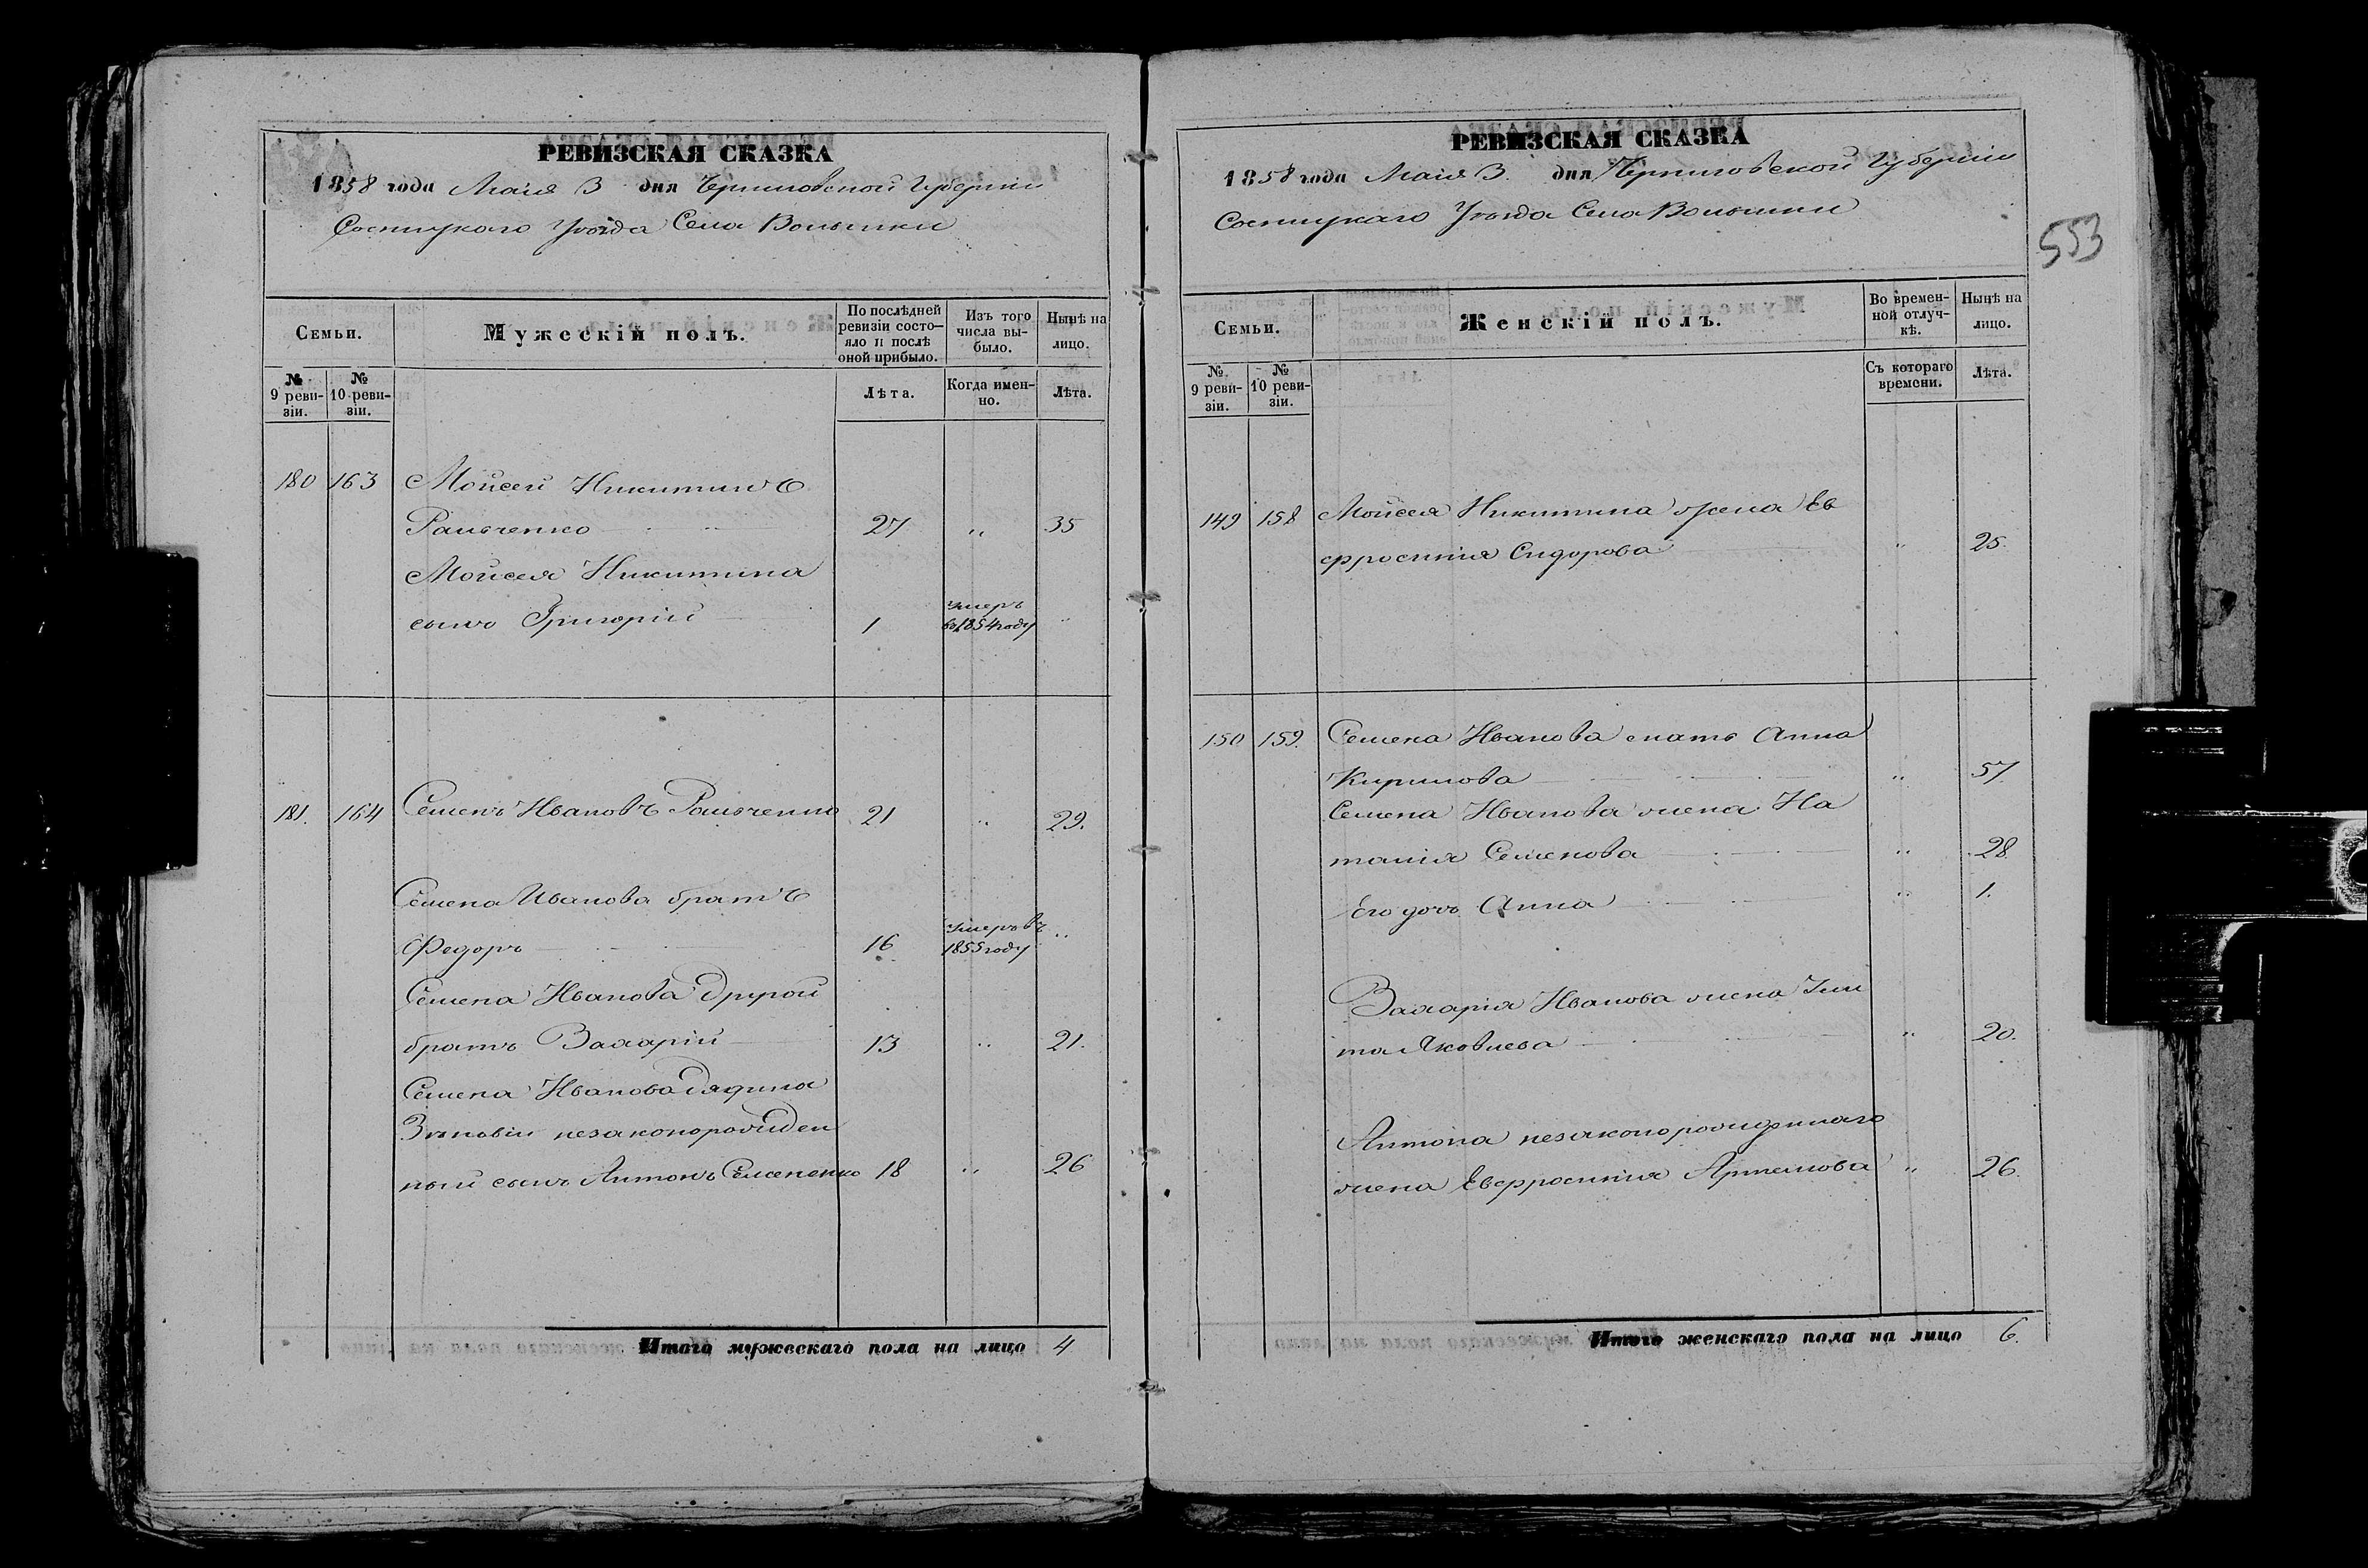 РЕВИЗСКАЯ СКАЗКА
1858 года Маія 3 дня Черниговской Губерніи
Сосницкаго Уѣзда Села Волынки
Семьи.
Мужескій полъ.
По послѣдней ревизіи состо-
яло и послѣ
оной прибыло.
Изъ того
числа вы-
было.
Нынѣ на
лицо.
№
9 реви-
зіи.
№
10 реви-
зіи.
Лѣта.
Когда имен-
но.
Лѣта.
180 163 Мойсей Никитинъ
Ральченко 27 „ 35
Мойсея Никитина
сынъ Григорій 1 умеръ
въ 1854 году „
181. 164 Семенъ Ивановъ Ральченко 21 „ 29.
Семена Иванова братъ
Федоръ 16 умеръ въ
1855 году „
Семена Иванова другой
братъ Захарій 13 „ 21.
Семена Иванова дядина
Зѣновіи незаконорожден
ный сынъ Антонъ Семененко 18 „ 26
Итого мужескаго пола на лицо 4
РЕВИЗСКАЯ СКАЗКА
1858 года Маія 3. дня Черниговской Губерніи
Сосницкаго Уѣзда Села Волынки
553
Семьи.
Женскій полъ.
Во времен-
ной отлуч-
кѣ.
Нынѣ на
лицо.
№
9 реви-
зіи.
№
10 реви-
зіи.
Съ котораго
времени.
Лѣта.
149 158 Мойсея Никитина жена Ев
фросинія Сидорова „ 25.
150 159. Семена Иванова мать Анна
Кирилова „ 57.
Семена Иванова жена На
талія Семенова „ 28.
Его дочь Анна „ 1.
Захарія Иванова жена Ули
та Яковлева „ 20.
Антона незаконорожденнаго
жена Евфросинія Артемова „ 26.
Итого женскаго пола на лицо 6.